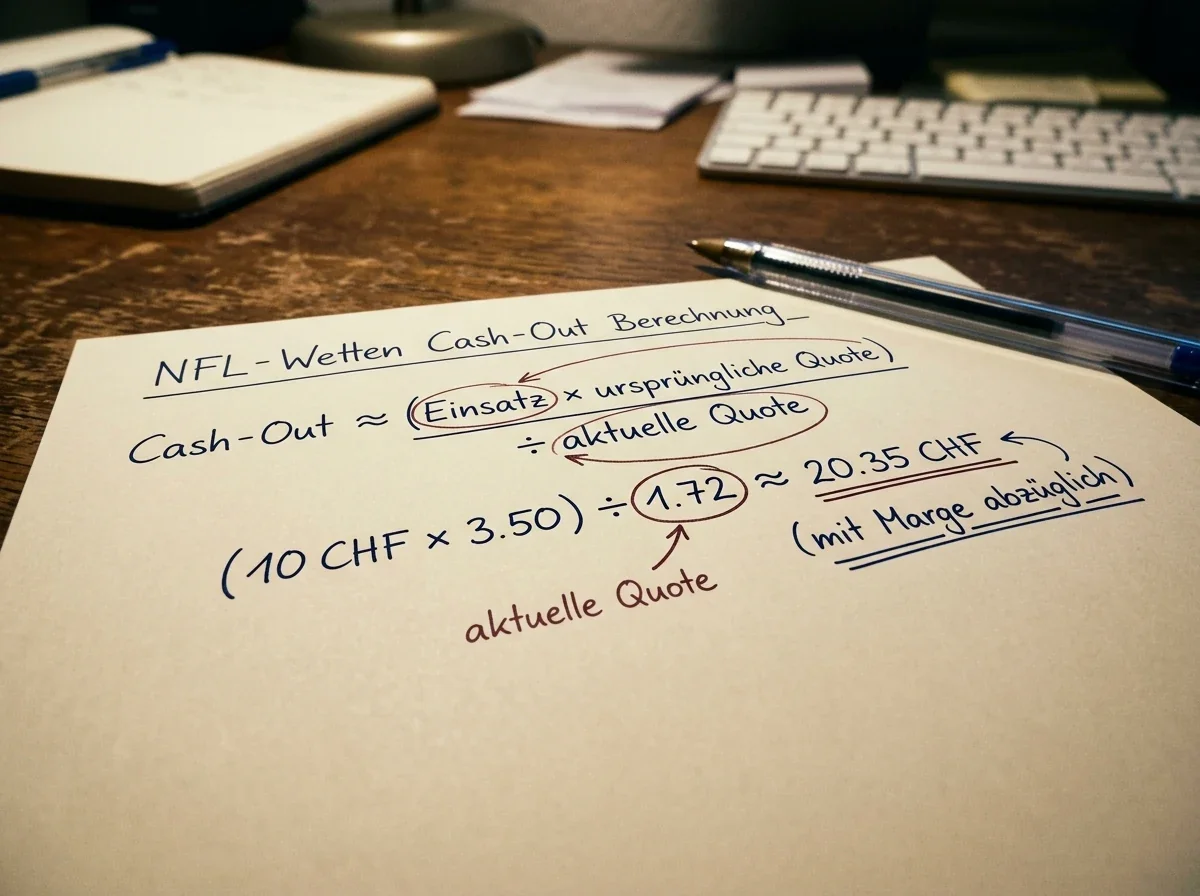 NFL-Wetten Cash-Out Berechnung
Cash-Out ≈ (Einsatz × ursprüngliche Quote)
÷ aktuelle Quote
(10 CHF × 3.50) ÷ 1.72 ≈ 20.35 CHF
(mit Marge abzüglich)
aktuelle Quote